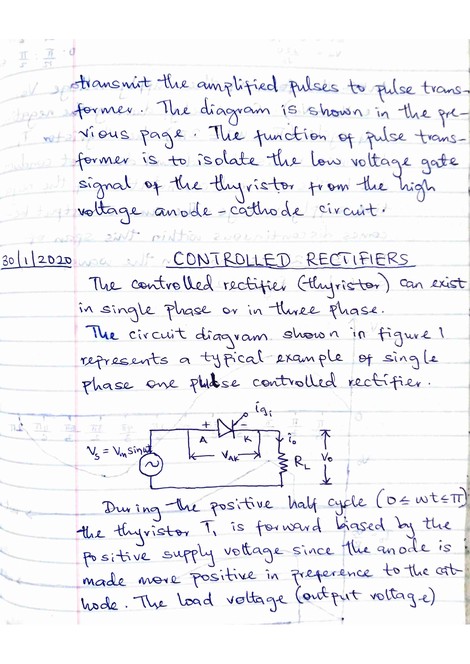 transmit the amplified pulses to pulse trans-
former. The diagram is shown in the pre-
vious page. The function of pulse trans-
former is to isolate the low voltage gate
signal of the thyristor from the high
voltage anode-cathode circuit.
30/1/2020 CONTROLLED RECTIFIERS
The controlled rectifier (thyristor) can exist
in single phase or in three phase.
The circuit diagram shown in figure 1
represents a typical example of single
phase one pulse controlled rectifier.
ig1
+ -
A K io
Vs = Vm sinωt VAK RL Vo
During the positive half cycle (0 ≤ ωt ≤ π)
the thyristor T1 is forward biased by the
positive supply voltage since the anode is
made more positive in preference to the cat-
hode. The load voltage (output voltage)